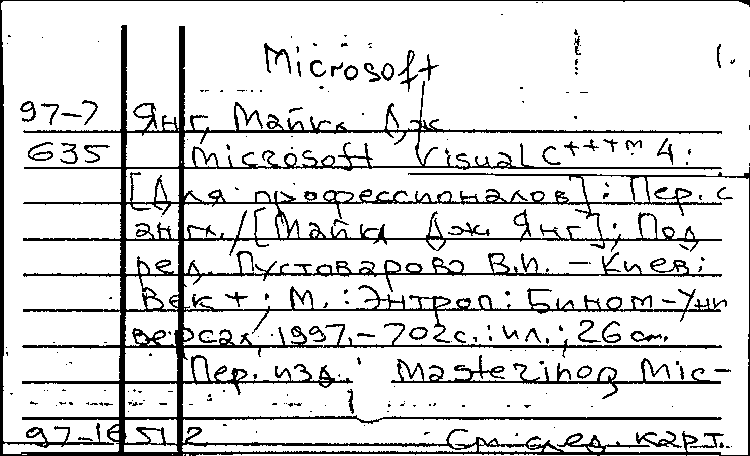 Microsoft 1.
97-7 Янг, Майкл Дж
635 Microsoft Visual C++ ™ 4:
[Для профессионалов]: Пер. с
англ./[Майкл Дж. Янг]; Под
ред. Пустоварово В.И. - Киев:
Век+; М.: Энтроп: Бином-Уни
версал, 1997.- 702с.: ил.; 26 см.
Пер. изд.: Masterinog Mic-
97-16512 См. след. карт.